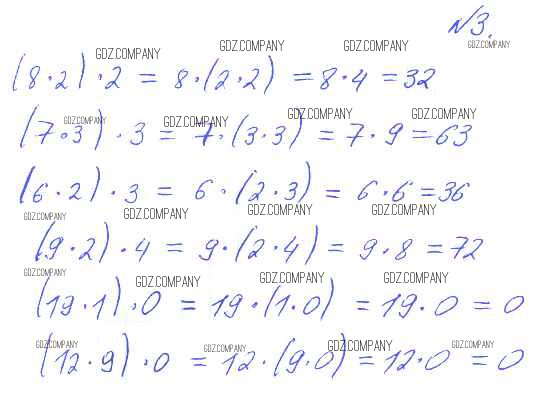 №3.
GDZ.COMPANY GDZ.COMPANY GDZ.COMPANY GDZ.COMPANY
(8·2)·2 = 8·(2·2) = 8·4 = 32
GDZ.COMPANY GDZ.COMPANY GDZ.COMPANY GDZ.COMPANY
(7·3)·3 = 7·(3·3) = 7·9 = 63
(6·2)·3 = 6·(2·3) = 6·6 = 36
GDZ.COMPANY GDZ.COMPANY GDZ.COMPANY GDZ.COMPANY
(9·2)·4 = 9·(2·4) = 9·8 = 72
GDZ.COMPANY GDZ.COMPANY GDZ.COMPANY GDZ.COMPANY
(19·1)·0 = 19·(1·0) = 19·0 = 0
GDZ.COMPANY GDZ.COMPANY GDZ.COMPANY GDZ.COMPANY
(12·9)·0 = 12·(9·0) = 12·0 = 0